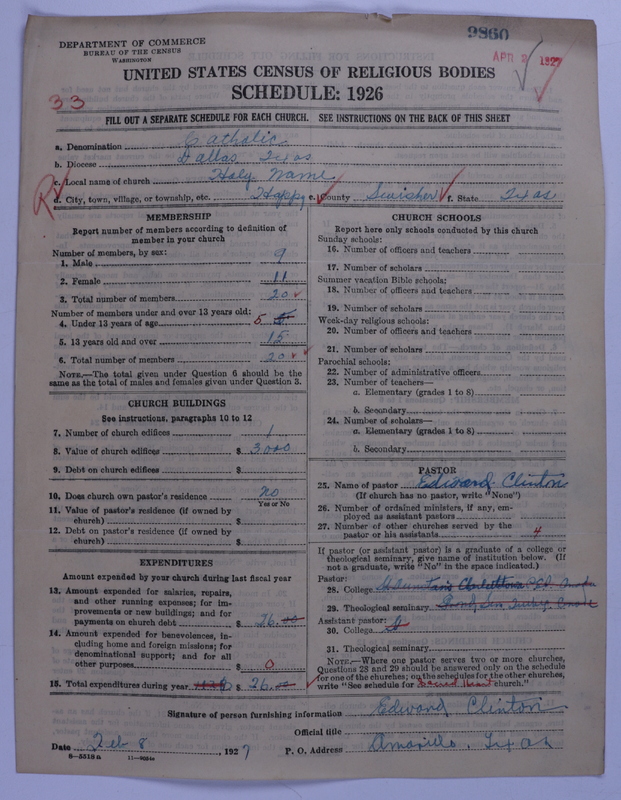 DEPARTMENT OF COMMERCE
BUREAU OF THE CENSUS
WASHINGTON
9860
APR 2 1927
UNITED STATES CENSUS OF RELIGIOUS BODIES
SCHEDULE: 1926
33
FILL OUT A SEPARATE SCHEDULE FOR EACH CHURCH. SEE INSTRUCTIONS ON THE BACK OF THIS SHEET
a. Denomination Catholic
b. Diocese Dallas, Texas
c. Local name of church Holy Name
R
d. City, town, village, or township, etc. Happy e. County Swisher f. State Texas
MEMBERSHIP
Report number of members according to definition of
member in your church
Number of members, by sex:
1. Male 9
2. Female 11
3. Total number of members 20
Number of members under and over 13 years old:
4. Under 13 years of age 5
5. 13 years old and over 15
6. Total number of members 20
NOTE.—The total given under Question 6 should be
same as the total of males and females given under Question 3.
CHURCH BUILDINGS
See instructions, paragraphs 10 to 12
7. Number of church edifices 1
8. Value of church edifices $ 3000
9. Debt on church edifices $
10. Does church own pastor's residence no
Yes or No
11. Value of pastor's residence (if owned by
church) $
12. Debt on pastor's residence (if owned by
church) $
EXPENDITURES
Amount expended by your church during last fiscal year
13. Amount expended for salaries, repairs,
and other running expenses; for im-
provements or new buildings; and for
payments on church debt $ 26.00
14. Amount expended for benevolences, in-
cluding home and foreign missions; for
denominational support; and for all
other purposes $ 0
15. Total expenditures during year $ 26.00
CHURCH SCHOOLS
Report here only schools conducted by this church
Sunday schools:
16. Number of officers and teachers
17. Number of scholars
Summer vacation Bible schools:
18. Number of officers and teachers
19. Number of scholars
Week-day religious schools:
20. Number of officers and teachers
21. Number of scholars
Parochial schools:
22. Number of administrative officers
23. Number of teachers—
a. Elementary (grades 1 to 8)
b. Secondary
24. Number of scholars—
a. Elementary (grades 1 to 8)
b. Secondary
PASTOR
25. Name of pastor Edward Clinton
(If church has no pastor, write "None")
26. Number of ordained ministers, if any, em-
ployed as assistant pastors
27. Number of other churches served by the
pastor or his assistants 4
If pastor (or assistant pastor) is a graduate of a college or
theological seminary, give name of institution below. (If
not a graduate, write "No" in the space indicated.)
Pastor:
28. College
29. Theological seminary
Assistant pastor:
30. College
31. Theological seminary
NOTE.—Where one pastor serves two or more churches,
Questions 28 and 29 should be answered only on the schedule
for one of the churches; on the schedules for the other churches,
write "See schedule for Sacred Heart church."
Signature of person furnishing information Edward Clinton
Official title
Date Feb 8 1927 P. O. Address Amarillo, Texas
8—5518a 11—8654a